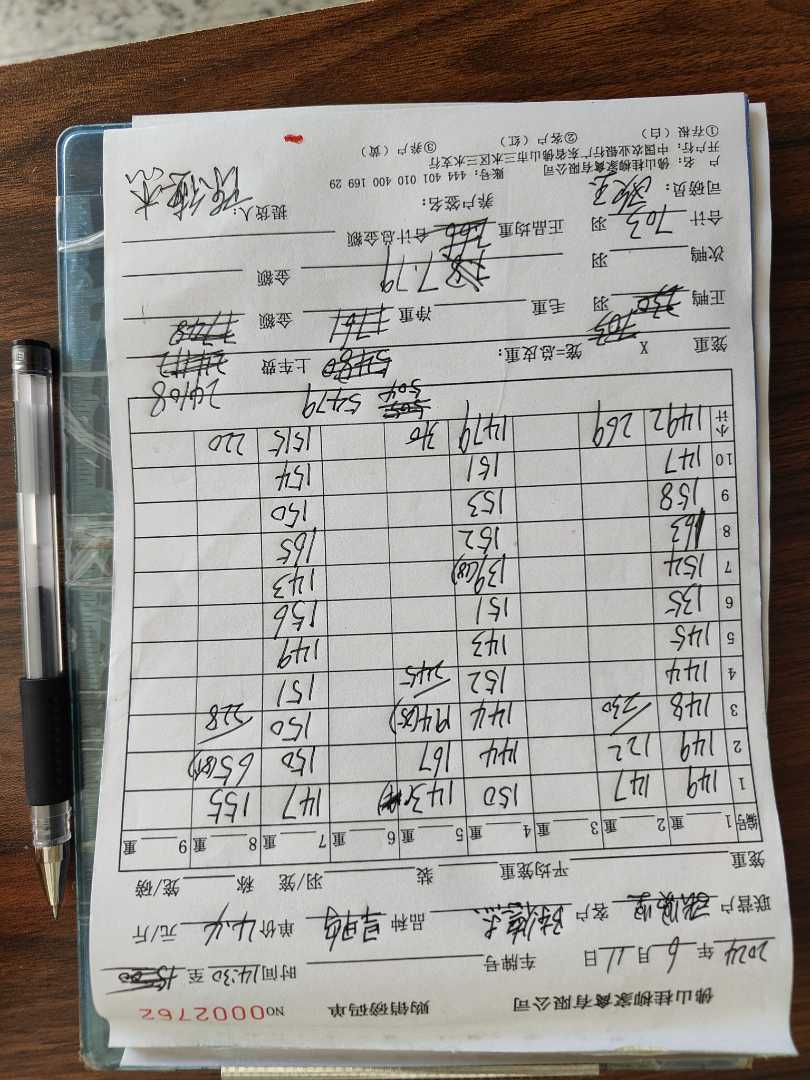 佛山桂柳家禽有限公司 购销磅码单 NO 0002762
2024 年 6 月 11 日 车牌号 时间 14:30 至
联营户 客户 品种 单价 4.4 元/斤
笼重 平均笼重 装 羽/笼 称 笼/磅
编号 1 重 2 重 3 重 4 重 5 重 6 重 7 重 8 重 9 重
1 149 147 150 143 147 155
2 149 122 144 167 150 65(8)
3 148 230 144 194(25) 150 228
4 144 152 245 151
5 145 143 149
6 135 151 156
7 154 139(8) 143
8 163 152 165
9 158 153 150
10 147 151 154
小计 1492 269 1479 1515 220
504 5479 24168
笼重 X 笼=总皮重: 上车费
正鸭 703 羽 毛重 净重 金额
次鸭 羽 7.79 金额
合计 703 羽 正品均重 合计总金额
司磅员: 养户签名: 提货人:
户 名: 佛山桂柳家禽有限公司 账号: 444 401 010 400 169 29
开户行: 中国农业银行广东省佛山市三水区三水支行
①存根(白) ②客户(红) ③养户(黄)